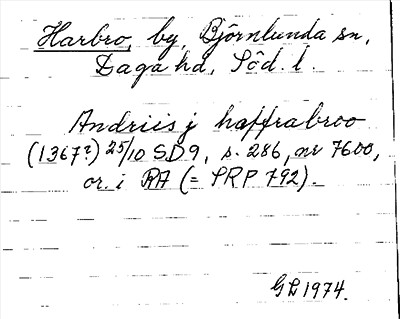 Harbro, by, Björnlunda sn,
Daga hd, Söd. l.
Andriis j haffrabroo
(1367?) 25/10 SD9, s. 286, nr 7600,
or. i RA (= SRP 792).
GL 1974.